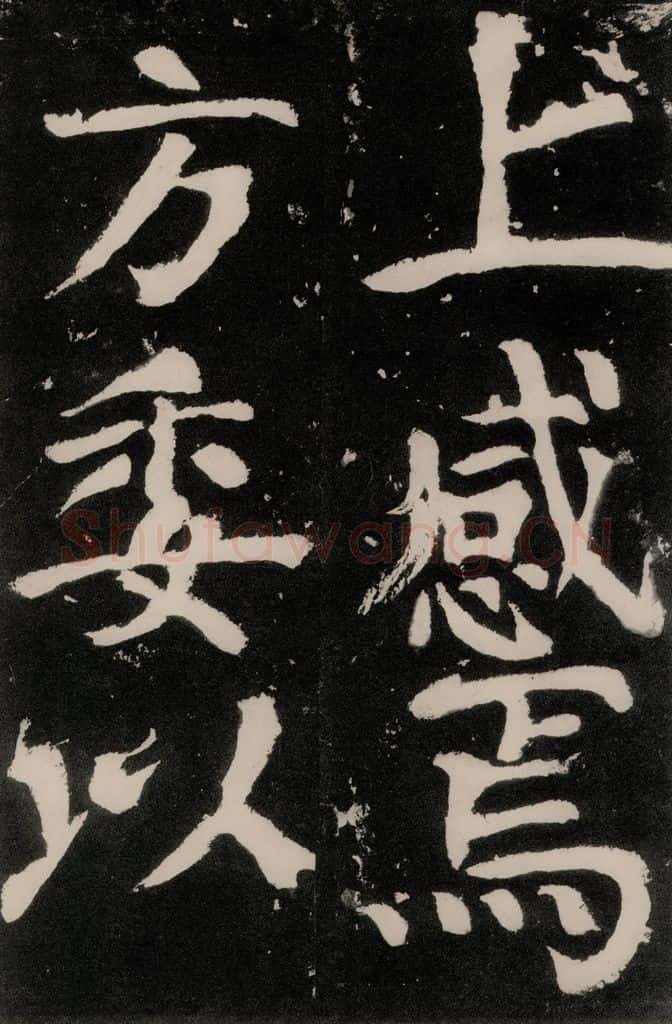 上感焉
方委以
Shufawang.CN